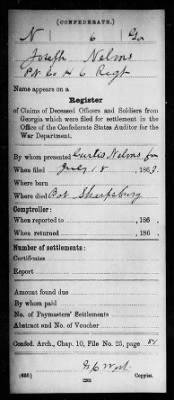 (CONFEDERATE.)
N 6 Ga
Joseph Nelms
Pvt Co H 6 Regt
Name appears on a
Register
of Claims of Deceased Officers and Soldiers from
Georgia which were filed for settlement in the
Office of the Confederate States Auditor for the
War Department.
By whom presented Curtis Nelms
When filed July 18, 1863.
Where born
Where died Bat Sharpsburg
Comptroller:
When reported to , 186 .
When returned , 186 .
Number of settlements:
Certificates
Report
Amount found due
By whom paid
No. of Paymasters' Settlements
Abstract and No. of Voucher
Confed. Arch., Chap. 10, File No. 25, page
Copyist.